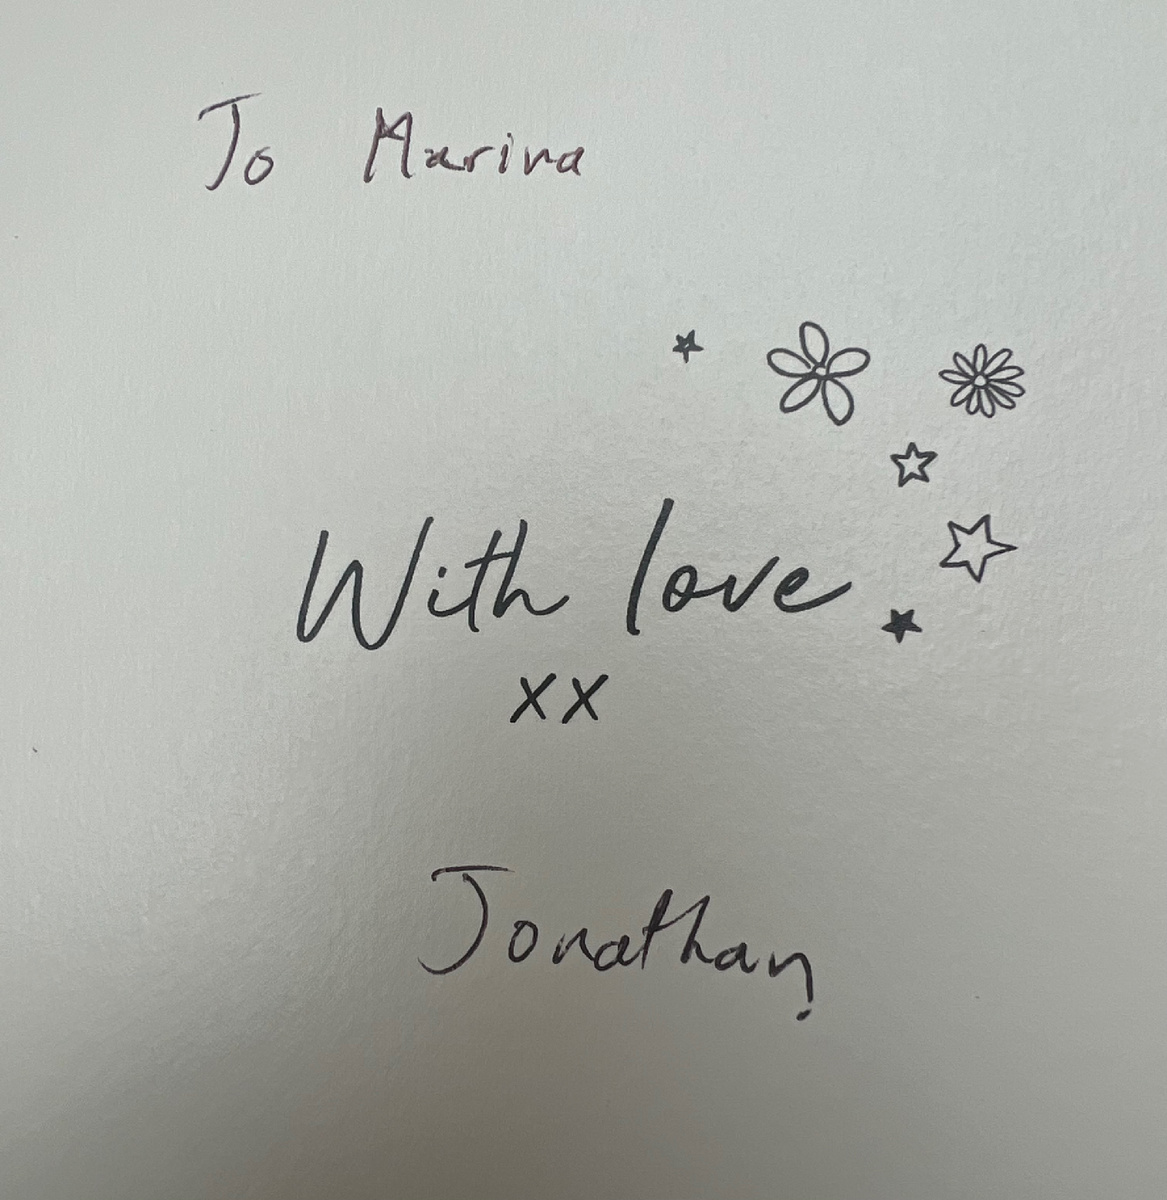 To Marina
With love
xx
Jonathan